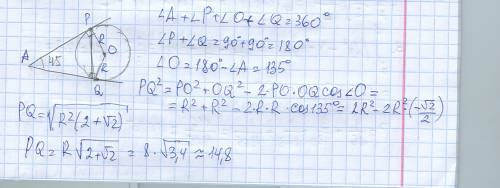 ∠A + ∠P + ∠O + ∠Q = 360°
∠P + ∠Q = 90° + 90° = 180°
∠O = 180° - ∠A = 135°
PQ² = PO² + OQ² - 2·PO·OQ cos∠O =
= R² + R² - 2·R·R·cos135° = 2R² - 2R²(-√2/2)
P
R
O
A
45
R
Q
PQ = √(R²(2+√2))
PQ = R√(2+√2) = 8·√3,4 ≈ 14,8